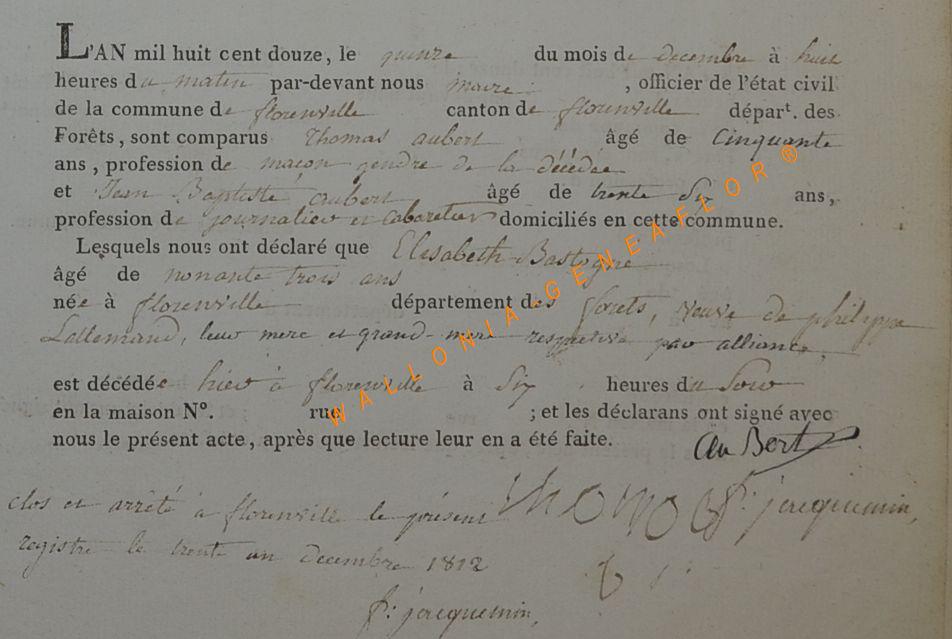 L'AN mil huit cent douze, le quinze du mois de decembre à huit
heures du matin par-devant nous maire , officier de l'état civil
de la commune de florenville canton de florenville départ. des
Forêts, sont comparus Thomas aubert âgé de Cinquante
ans, profession de macon gendre de la décédée
et Jean Baptiste aubert âgé de trente Six ans,
profession de journalier et Cabaretier domiciliés en cette commune.
Lesquels nous ont déclaré que Elisabeth Bastogne
âgé de nonante trois ans
née à florenville département des forets, veuve de philippe
Lallemand, leur mere et grand mere respective par alliance,
est décédée hier à florenville à Six heures du Soir
en la maison N°. rue ; et les déclarans ont signé avec
nous le présent acte, après que lecture leur en a été faite.
au Bert
clos et arrêté à florenville le présent Thomas P. jacquemin,
registre le trente un decembre 1812
P. jacquemin,
WALLONIA-GENEAFLOR ®